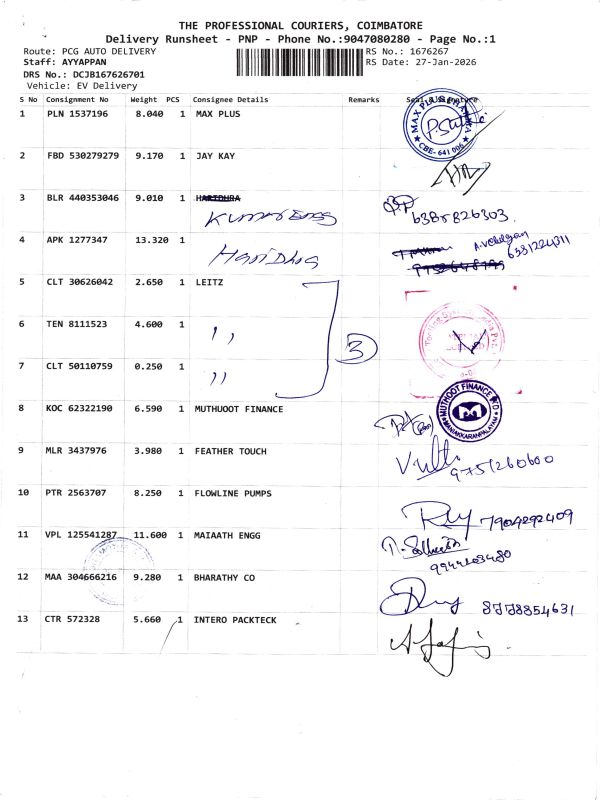 THE PROFESSIONAL COURIERS, COIMBATORE
Delivery Runsheet - PNP - Phone No.:9047080280 - Page No.:1
Route: PCG AUTO DELIVERY RS No.: 1676267
Staff: AYYAPPAN RS Date: 27-Jan-2026
DRS No.: DCJB167626701
Vehicle: EV Delivery
S No Consignment No Weight PCS Consignee Details Remarks
1 PLN 1537196 8.040 1 MAX PLUS
CBE- 641 006
2 FBD 530279279 9.170 1 JAY KAY
3 BLR 440353046 9.010 1 HARIDHRA
KUMAR ENGG 6385826303
4 APK 1277347 13.320 1
Hari Dhra 6381224311
5 CLT 30626042 2.650 1 LEITZ
6 TEN 8111523 4.600 1 ,, 3
7 CLT 50110759 0.250 1 ,,
8 KOC 62322190 6.590 1 MUTHUOOT FINANCE
MUTHOOT FINANCE LTD
MANIAKKARANPALAYAM
9 MLR 3437976 3.980 1 FEATHER TOUCH
9751260600
10 PTR 2563707 8.250 1 FLOWLINE PUMPS
7904292409
11 VPL 125541287 11.600 1 MAIAATH ENGG
12 MAA 304666216 9.280 1 BHARATHY CO
8778854631
13 CTR 572328 5.660 1 INTERO PACKTECK